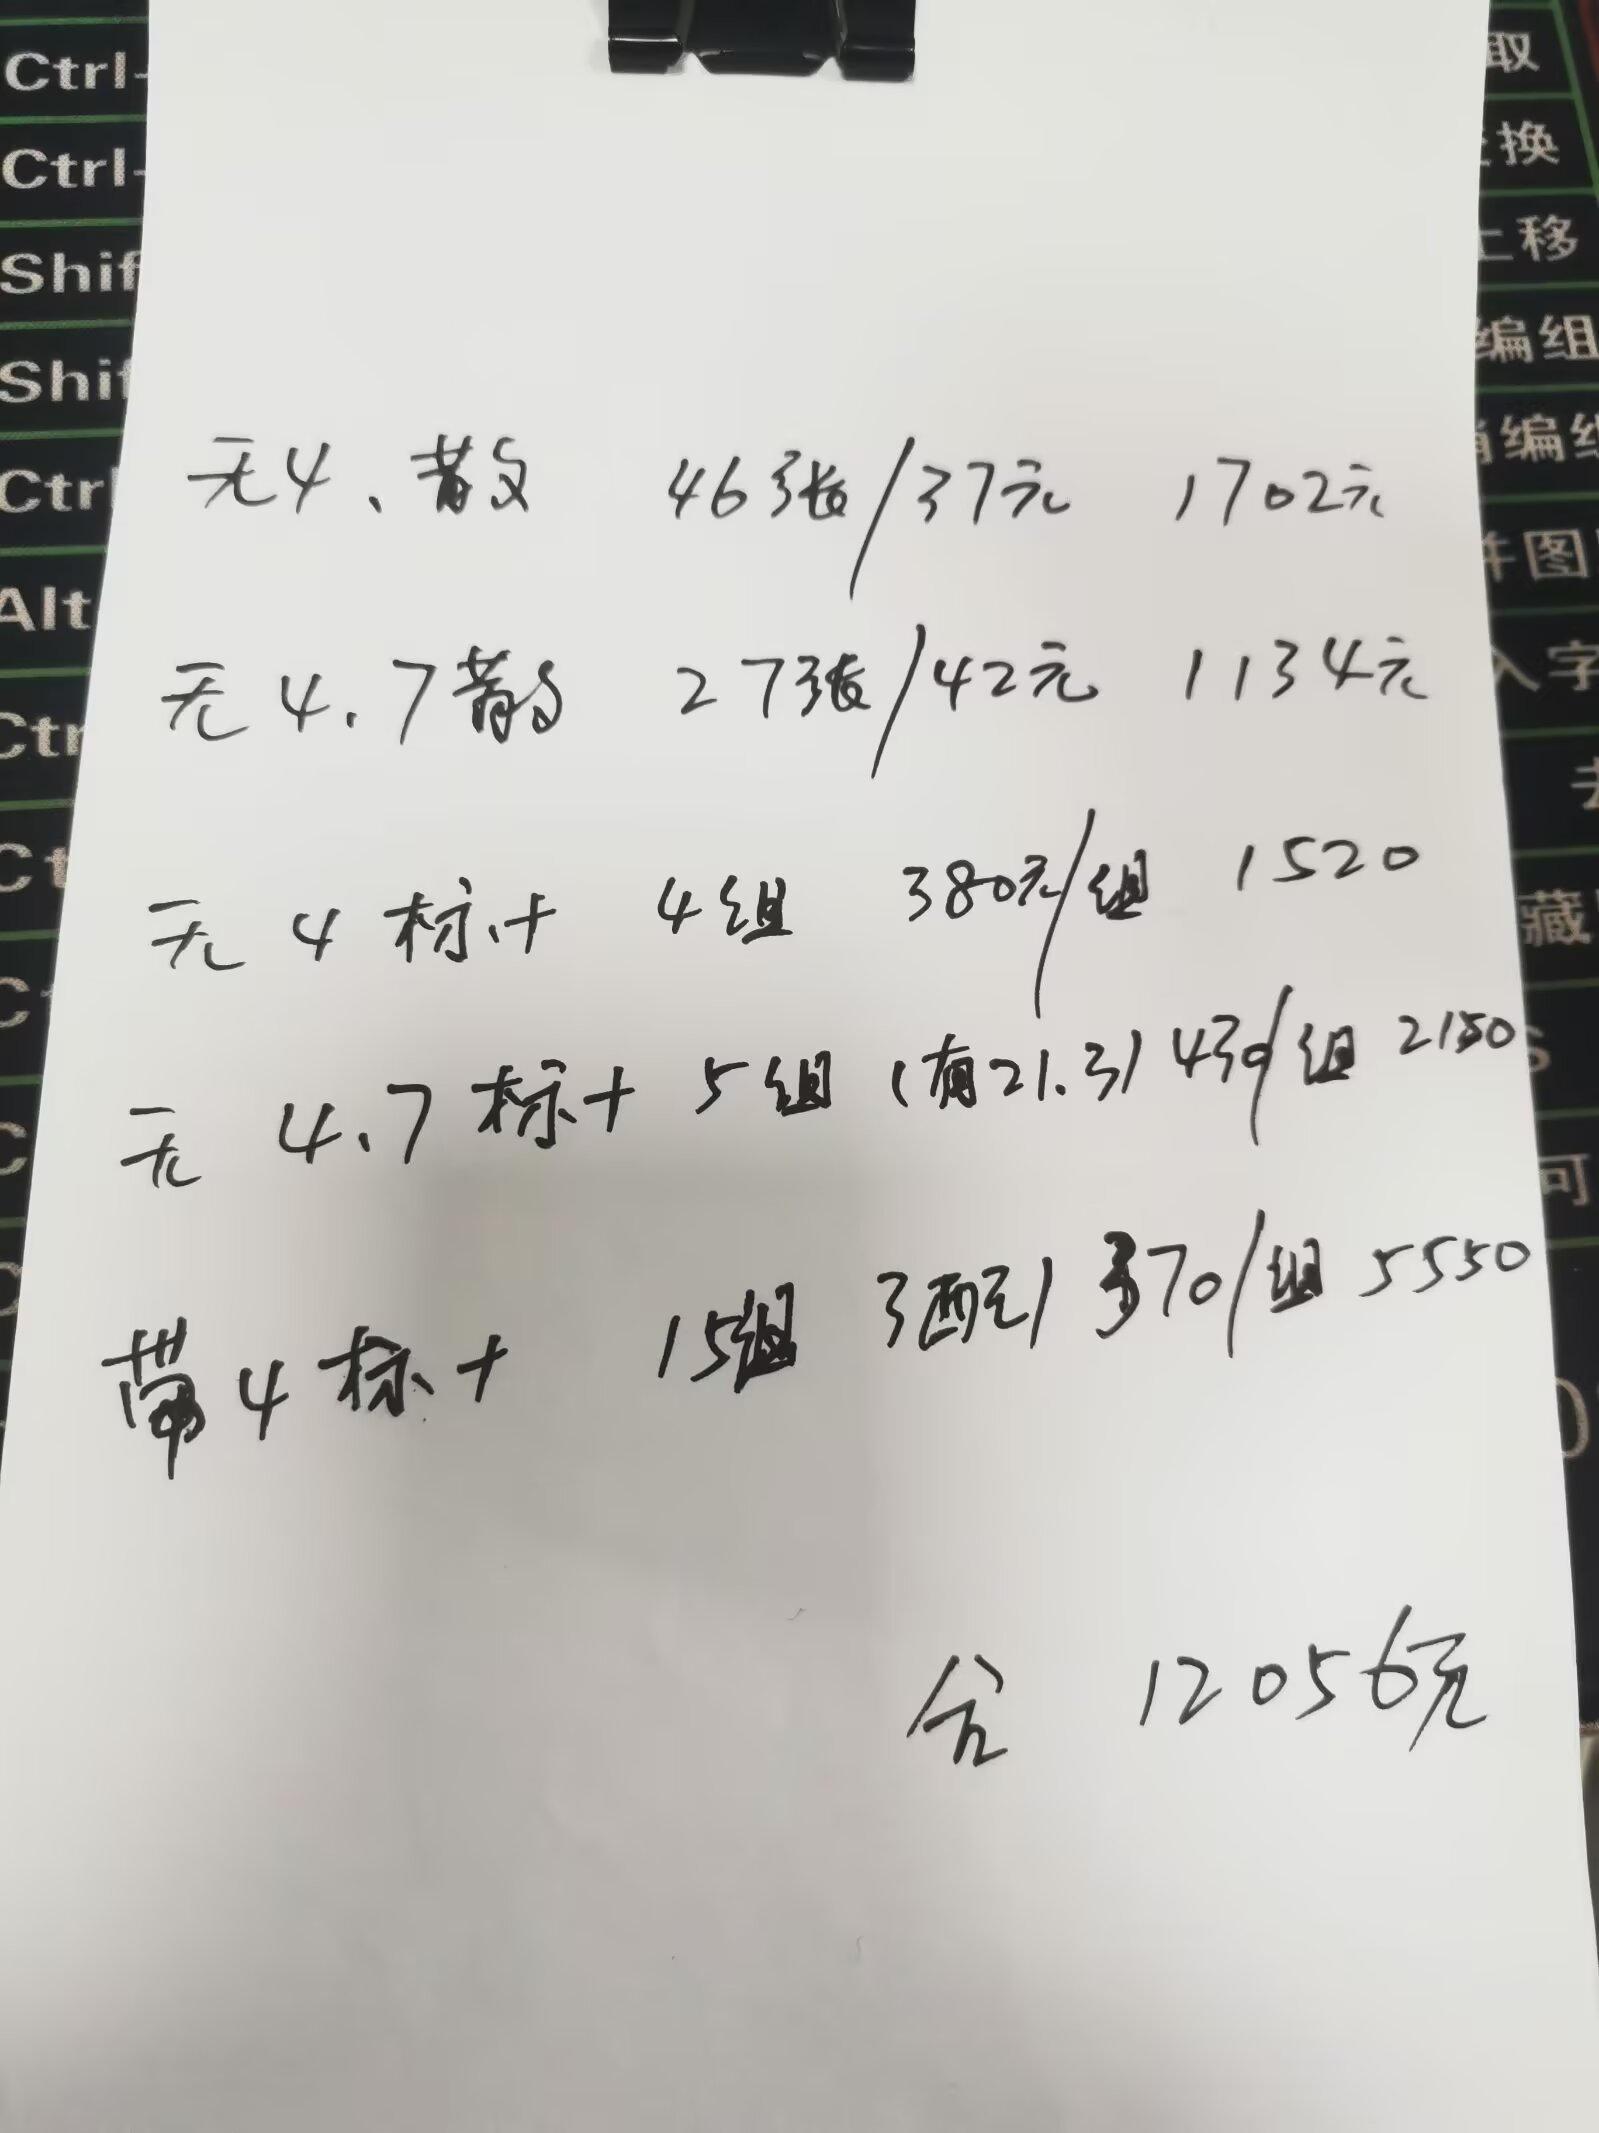 Ctrl- 取
Ctrl- 换
Shif 上移
Shif 编组
Ctrl 编组
无4、散 46张/37元 1702元
Alt 并图
入字
无4.7散 27张/42元 1134元
Ctr 去
Ct
无4标十 4组 380元/组 1520
藏
无4.7标十 5组(有21.3)430/组 2150
可
带4标十 15组 3配1 370/组 5550
合 12056元